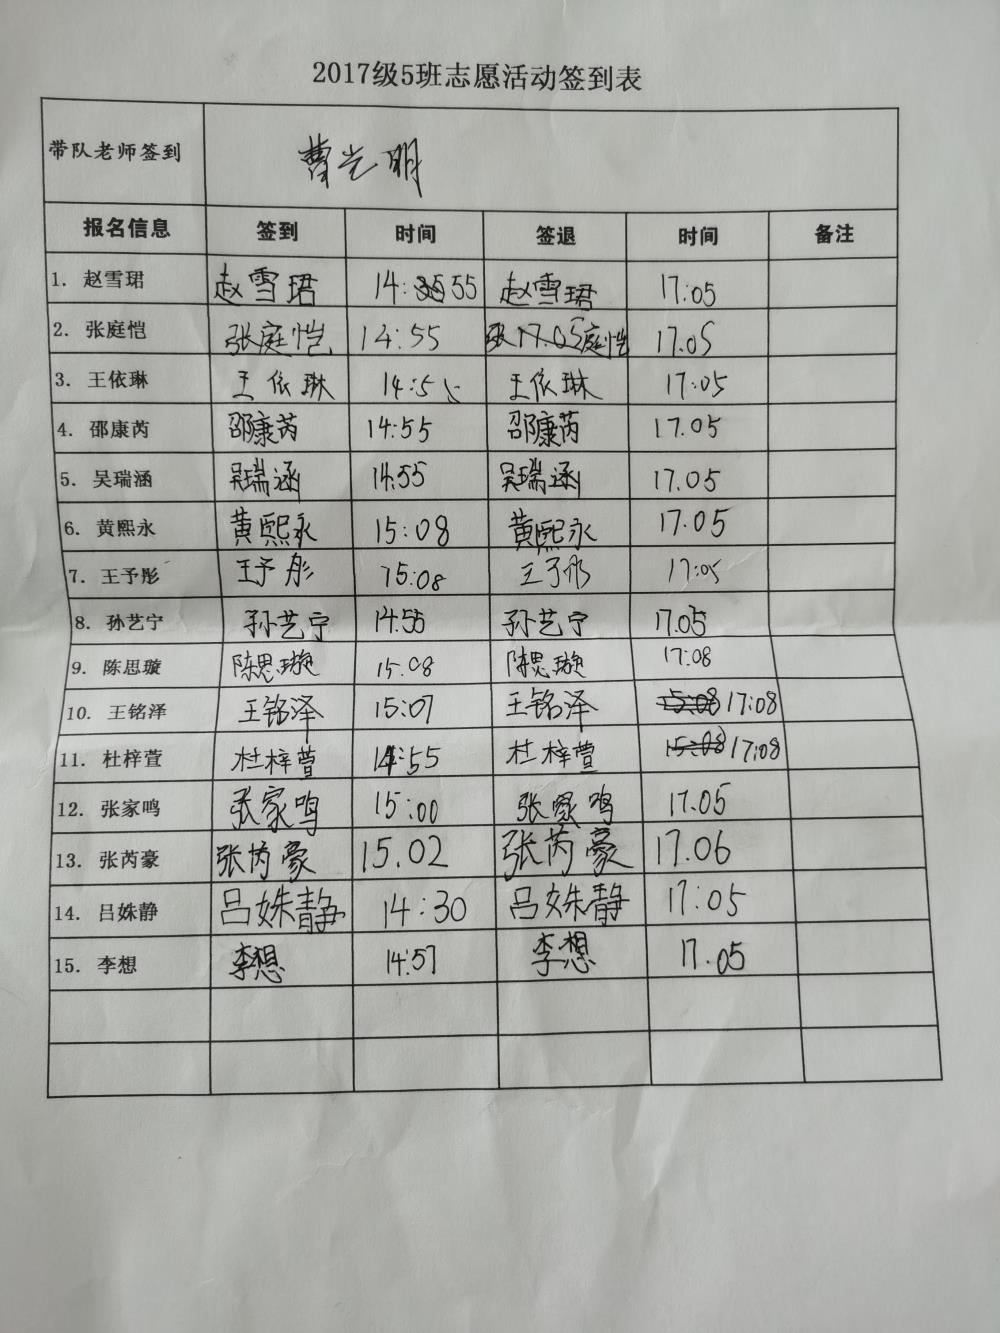 2017级5班志愿活动签到表
带队老师签到 曹光明
报名信息 签到 时间 签退 时间 备注
1. 赵雪珺 赵雪珺 14:55 赵雪珺 17:05
2. 张庭恺 张庭恺 14:55 张17.05庭恺 17.05
3. 王依琳 王依琳 14:55 王依琳 17:05
4. 邵康芮 邵康芮 14:55 邵康芮 17.05
5. 吴瑞涵 吴瑞涵 14:55 吴瑞涵 17.05
6. 黄熙永 黄熙永 15:08 黄熙永 17.05
7. 王予彤 王予彤 15:08 王予彤 17:05
8. 孙艺宁 孙艺宁 14:55 孙艺宁 17.05
9. 陈思璇 陈思璇 15:08 陈思璇 17:08
10. 王铭泽 王铭泽 15:07 王铭泽 15:08 17:08
11. 杜梓萱 杜梓萱 14:55 杜梓萱 15:08 17:08
12. 张家鸣 张家鸣 15:00 张家鸣 17.05
13. 张芮豪 张芮豪 15.02 张芮豪 17.06
14. 吕姝静 吕姝静 14:30 吕姝静 17:05
15. 李想 李想 14:57 李想 17.05